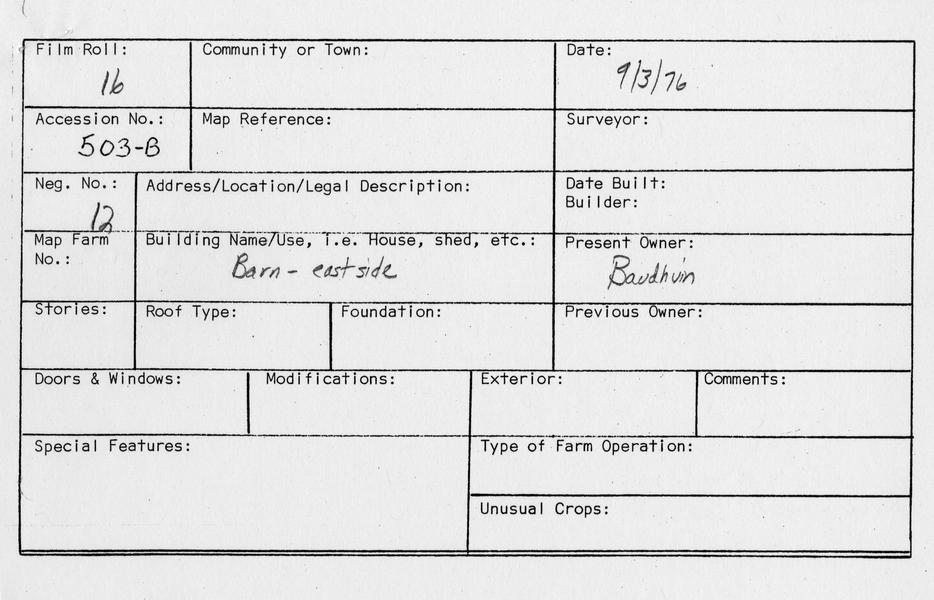 Film Roll:
16
Community or Town:
Date:
9/3/76
Accession No.:
503-B
Map Reference:
Surveyor:
Neg. No.:
12
Address/Location/Legal Description:
Date Built:
Builder:
Map Farm
No.:
Building Name/Use, i.e. House, shed, etc.:
Barn - east side
Present Owner:
Baudhuin
Stories:
Roof Type:
Foundation:
Previous Owner:
Doors & Windows:
Modifications:
Exterior:
Comments:
Special Features:
Type of Farm Operation:
Unusual Crops: